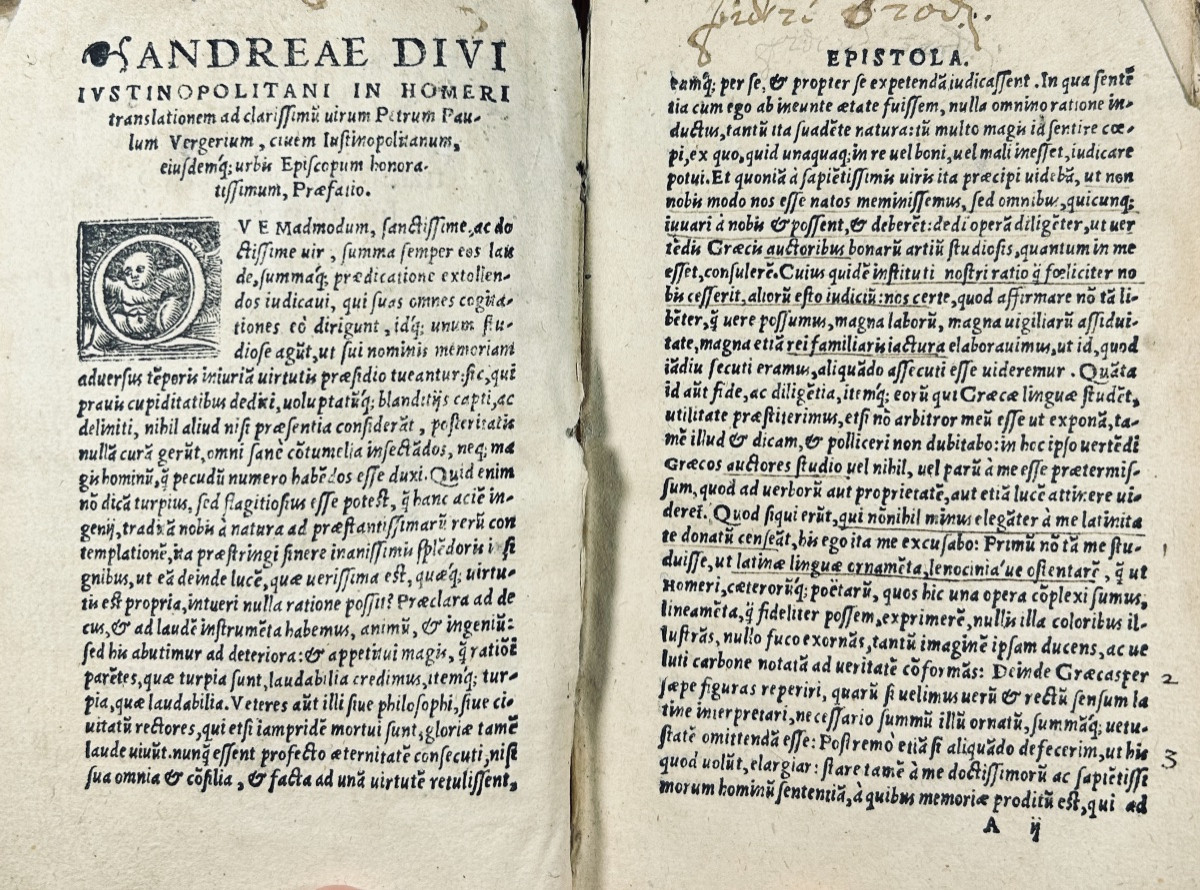 ANDREAE DIVI
IVSTINOPOLITANI IN HOMERI
translationem ad clarissimũ uirum Petrum Pau-
lum Vergerium, ciuem Iustinopolitanum,
eiusdemq́; urbis Episcopum honora-
tissimum, Præfatio.
QVE Madmodum, sanctissime, ac do
ctissime uir, summa semper eos lau
de, summaq́; prædicatione extollen-
dos iudicaui, qui suas omnes cogita-
tiones eò dirigunt, idq́; unum stu-
diose agũt, ut sui nominis memoriam
aduersus tẽporis iniuriã uirtutis præsidio tueantur: sic, qui
prauis cupiditatibus dediti, uoluptatũq́; blanditijs capti, ac
deliniti, nihil aliud nisi præsentia considerãt, posteritatis
nullã curã gerũt, omni sanè cõtumelia insectãdos, neq; ma
gis hominũ, q̃ pecudũ numero habẽdos esse duxi. Quid enim
nõ dicã turpius, sed flagitiosius esse potest, q̃ hanc aciẽ in-
genij, traditã nobis à natura ad præstantissimarũ rerũ con
templationẽ, ita præstringi sinere inanissimis splẽdoris i si
gnibus, ut eã deinde lucẽ, quæ uerissima est, quæq́; uirtu-
tis est propria, intueri nulla ratione possit? Præclara ad de
cus, & ad laudẽ instrumẽta habemus, animũ, & ingeniũ:
sed his abutimur ad deteriora: & appetitui magis, q̃ rationi
parẽtes, quæ turpia sunt, laudabilia credimus, itemq́; tur-
pia, quæ laudabilia. Veteres aũt illi siue philosophi, siue ci-
uitatũ rectores, qui etsi iampridẽ mortui sunt, gloriæ tamẽ
laude uiuũt. nunq̃ essent profecto æternitatẽ consecuti, nisi
sua omnia & cõsilia, & facta ad unã uirtutẽ retulissent,
EPISTOLA.
eamq́; per se, & propter se expetendã iudicassent. In qua sentẽ
tia cum ego ab ineunte ætate fuissem, nulla omnino ratione in-
ductus, tantũ ita suadẽte natura: tũ multo magis id sentire cœ-
pi, ex quo, quid unaquaq; in re uel boni, uel mali inesset, iudicare
potui. Et quoniã à sapiẽtissimis uiris ita præcipi uidebã, ut non
nobis modo nos esse natos meminissemus, sed omnibus, quicunq;
iuuari à nobis & possent, & deberẽt: dedi operã diligẽter, ut uer
tẽdis Græcis auctoribus bonarũ artiũ studiosis, quantum in me
esset, consulerẽ. Cuius quidẽ instituti nostri ratio q̃ fœliciter no
bis cesserit, aliorũ esto iudiciũ: nos certe, quod affirmare nõ tã li-
bẽter, q̃ uere possumus, magna laborũ, magna uigiliarũ assidui-
tate, magna etiã rei familiaris iactura elaborauimus, ut id, quod
iãdiu secuti eramus, aliquãdo assecuti esse uideremur. Quãta
id aũt fide, ac diligẽtia, itemq́; eorũ qui Græcæ linguæ studẽt,
utilitate præstiterimus, etsi nõ arbitror meũ esse ut exponã, ta-
mẽ illud & dicam, & polliceri non dubitabo: in hoc ipso uertẽdi
Græcos auctores studio uel nihil, uel parũ à me esse prætermis-
sum, quod ad uerborũ aut proprietatẽ, aut etiã lucẽ attinere ui-
deret. Quod siqui erũt, qui nõnihil minus elegãter à me latinita
te donatũ censeãt, his ego ita me excusabo: Primũ nõ tã me stu-
duisse, ut latinæ linguæ ornamẽta, lenocinia'ue ostentarẽ, q̃ ut
Homeri, cæterorũq́; poëtarũ, quos hic una opera cõplexi sumus,
lineamẽta, q̃ fideliter possem, exprimerẽ, nullis illa coloribus il-
lustrãs, nullo fuco exornãs, tantũ imaginẽ ipsam ducens, ac ue
luti carbone notatã ad ueritatẽ cõformãs: Deinde Græcas per
sæpe figuras reperiri, quarũ si uelimus uerũ & rectũ sensum la
tine interpretari, necessario summũ illũ ornatũ, summãq́; uetu-
statẽ omittendã esse: Postremò etiã si aliquãdo defecerim, ut his
quod uolũt, elargiar: stare tamẽ à me doctissimorũ ac sapiẽtissi
morum hominũ sententiã, à quibus memoriæ proditũ est, qui ad
A ij
1
2
3